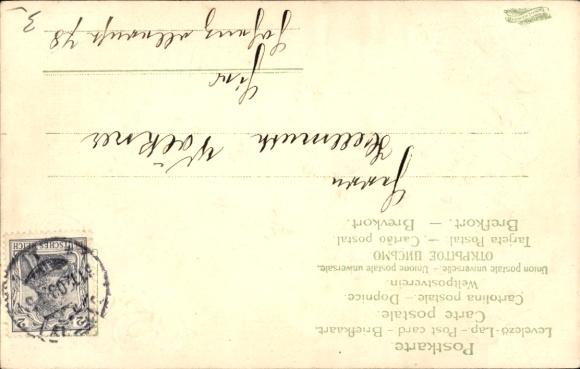 Postkarte
Levelező-Lap.- Post card - Briefkaart.
Carte postale.
Cartolina postale.- Dopisnice.
Weltpostverein.
Union postale universelle. - Unione postale universale.
ОТКРЫТОЕ ПИСЬМО
Tarjeta Postal. - Cartão postal.
Brefkort. — Brevkort.
Herrn
Hellmuth Völkner
hier
78
3
DEUTSCHES REICH
2
2